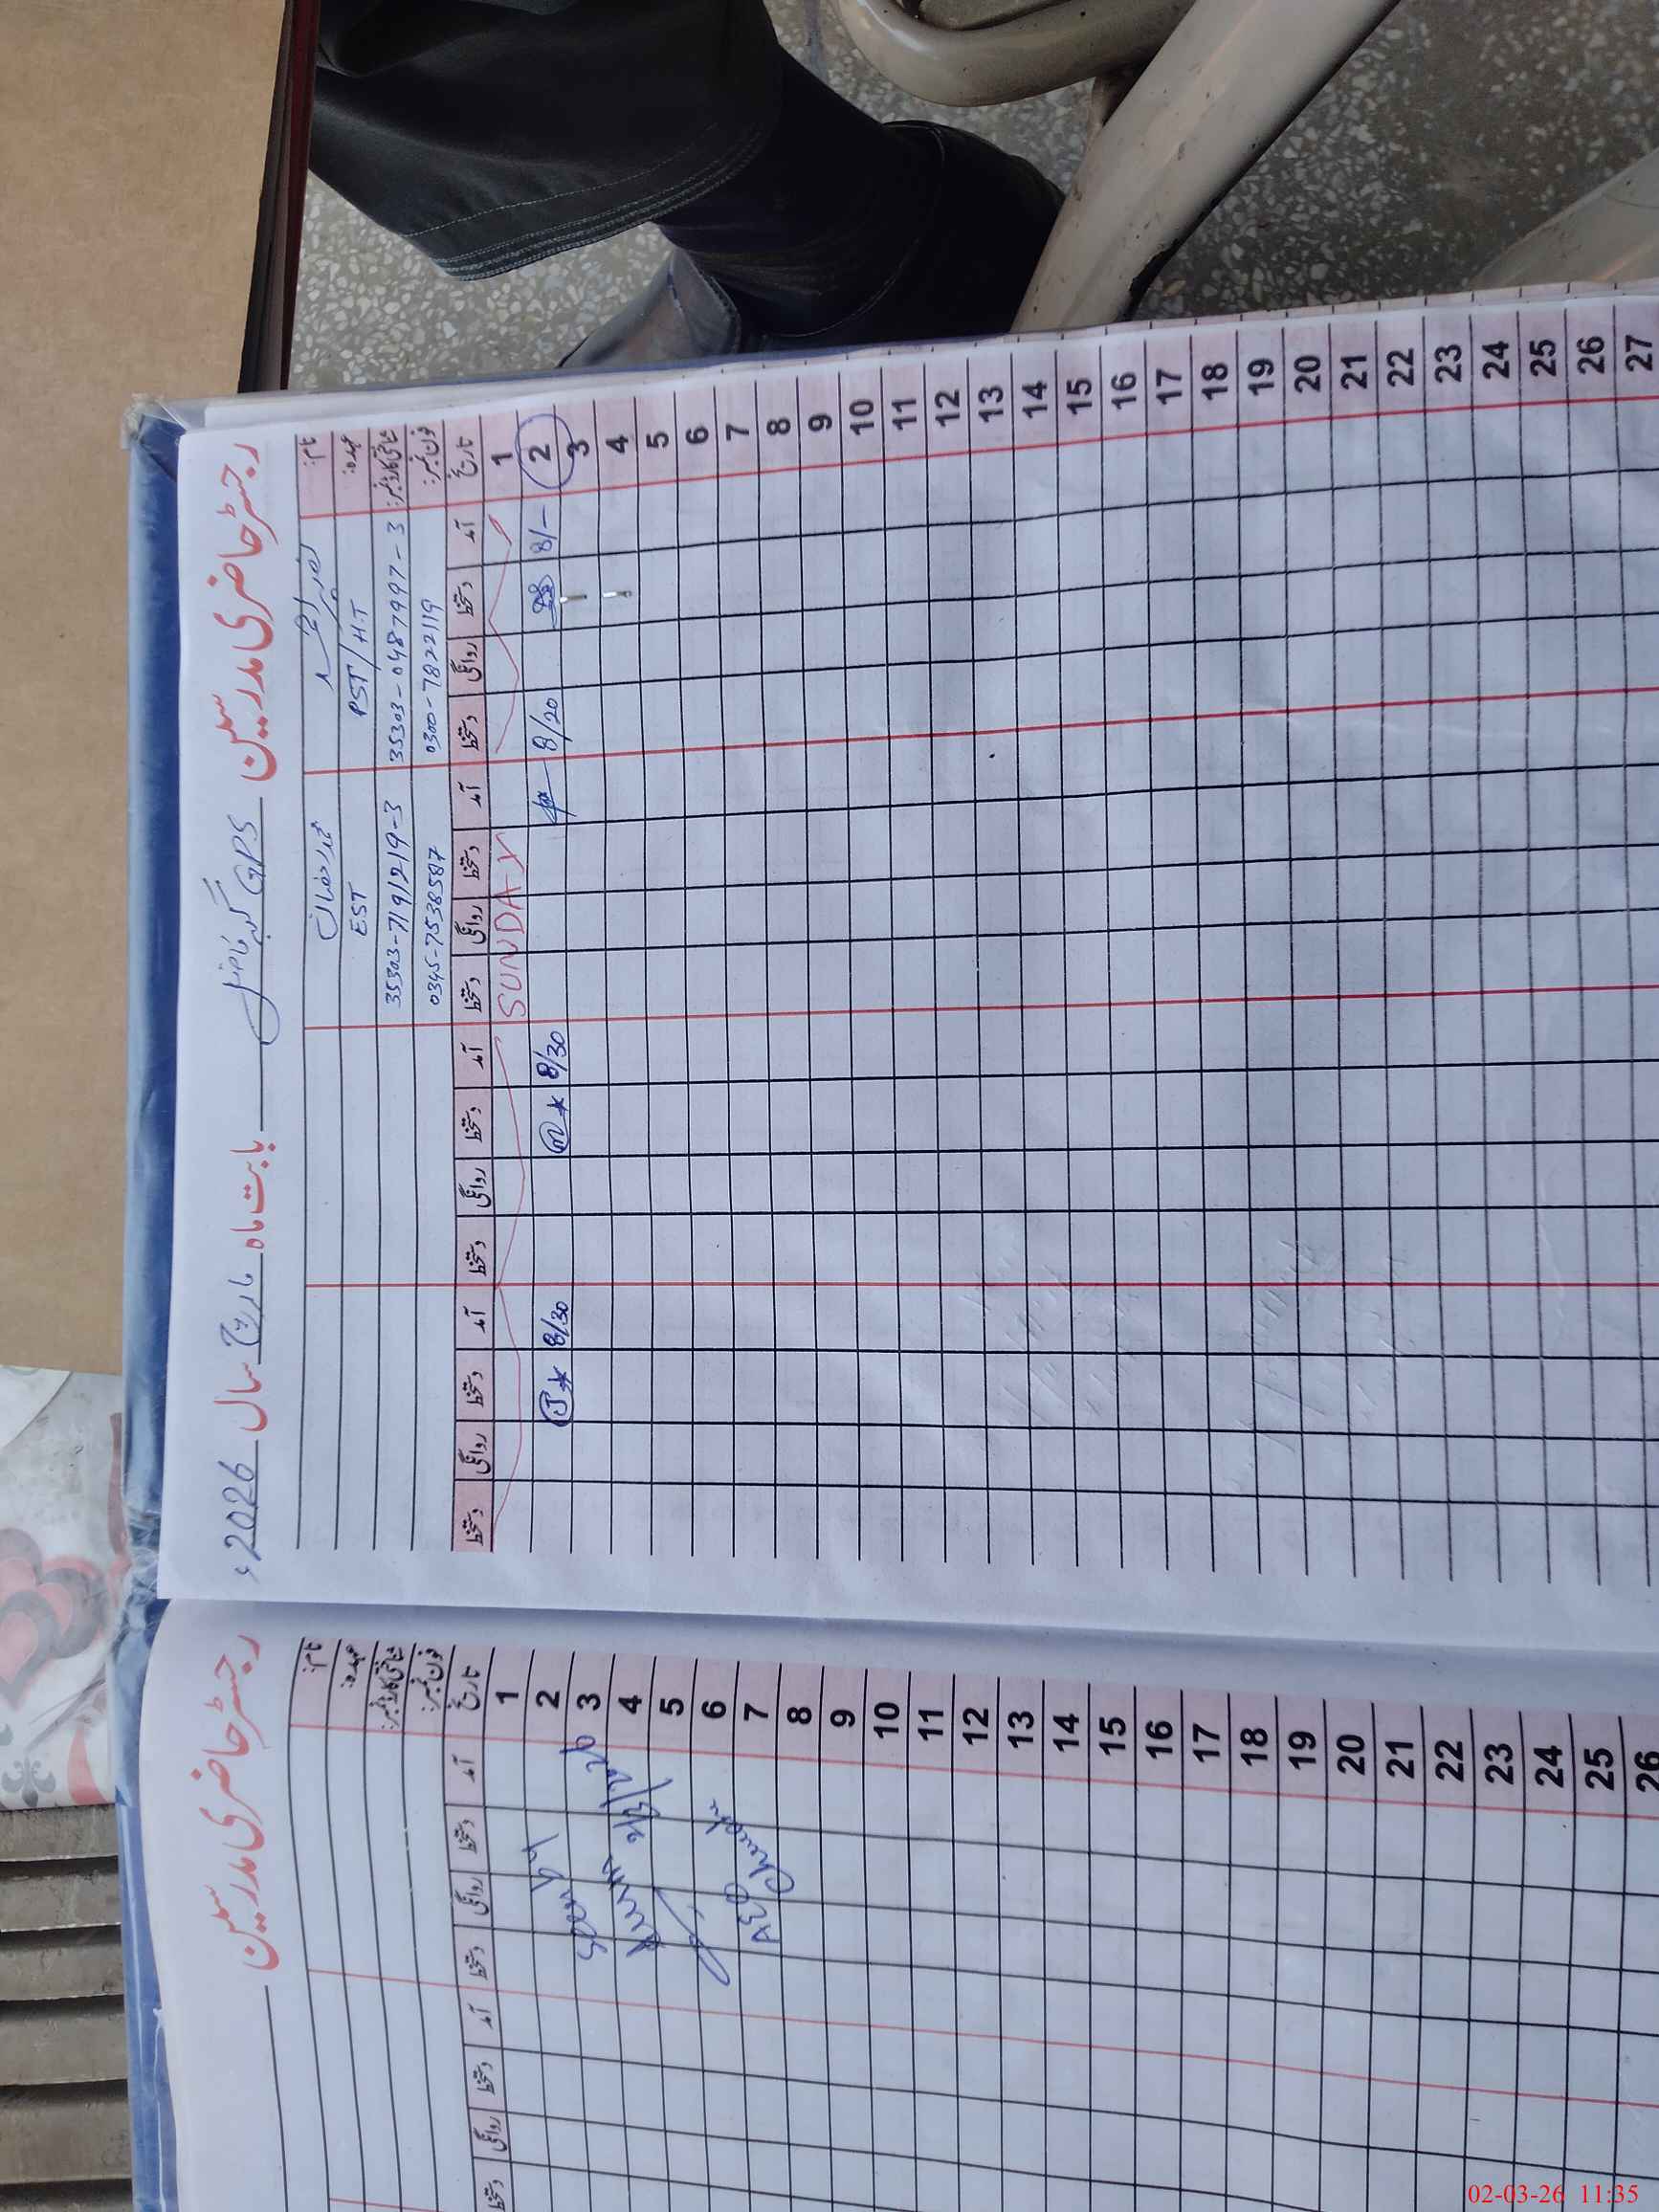 رجسٹر حاضری مدرسین GPS بابت ماہ مارچ سال 2026ء
نام:
عہدہ: PST/H.T EST
شناختی کارڈ نمبر: 35303-0487997-3 35303-7191219-3
فون نمبر: 0300-7822119 0345-7538587
تاریخ آمد دستخط روانگی دستخط آمد دستخط روانگی دستخط آمد دستخط روانگی دستخط آمد دستخط روانگی دستخط
1 SUNDAY
2 8/- 8/20 8/30 8/30
3
4
5
6
7
8
9
10
11
12
13
14
15
16
17
18
19
20
21
22
23
24
25
26
27
رجسٹر حاضری مدرسین
نام:
عہدہ:
شناختی کارڈ نمبر:
فون نمبر:
تاریخ آمد دستخط روانگی دستخط آمد دستخط روانگی دستخط
1
2 Seen by
3
4
5
6
7 AEO
8
9
10
11
12
13
14
15
16
17
18
19
20
21
22
23
24
25
26
02-03-26 11:35